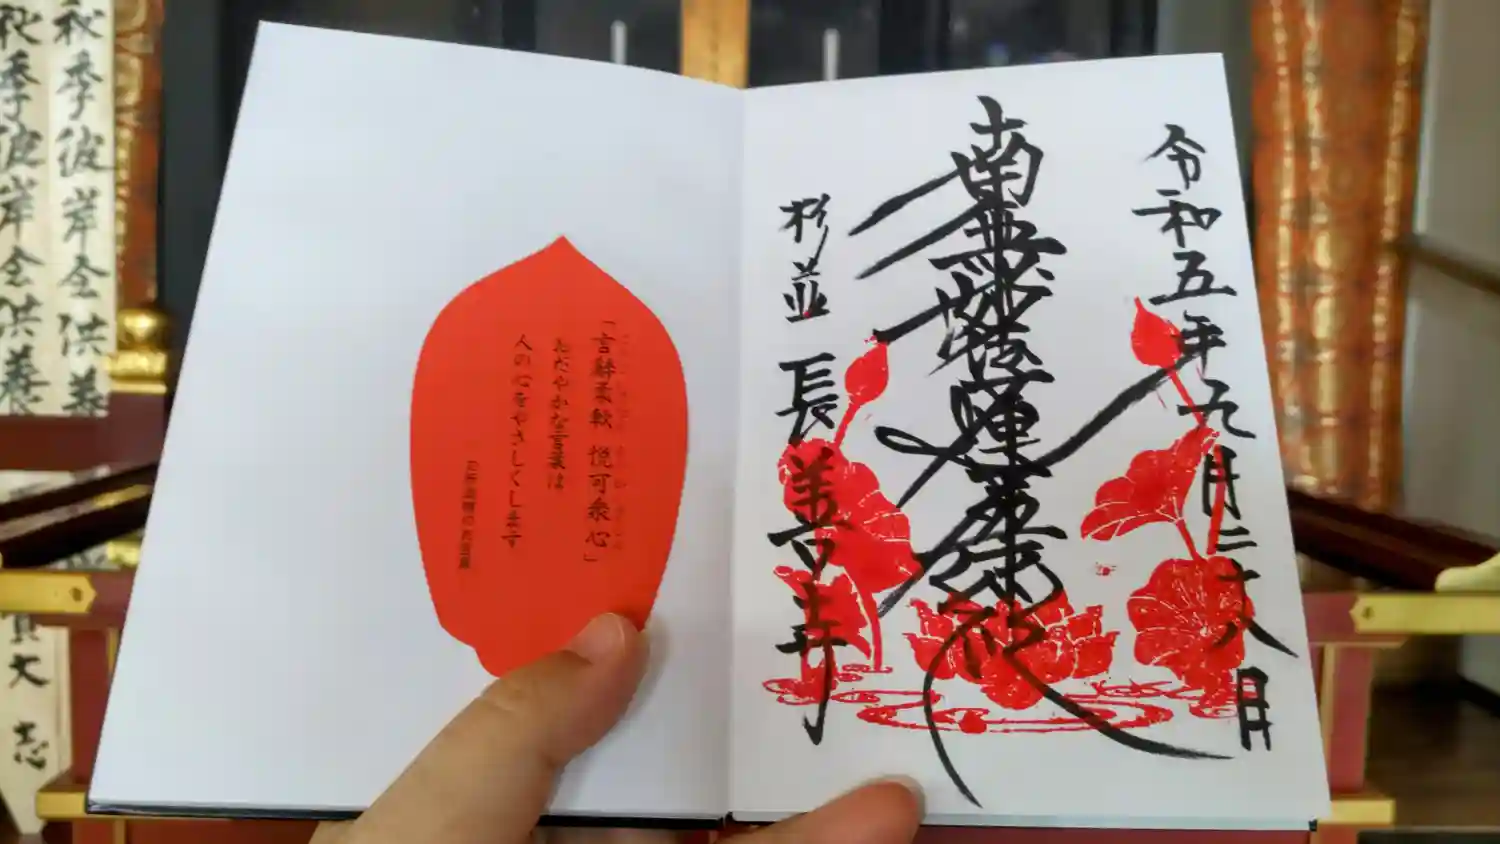 令和五年九月二十八日
南無妙法蓮華経
杉並 長善寺
「言辭柔軟 悦可衆心」
おだやかな言葉は
人の心をやさしくします
秋季彼岸会供養
秋季彼岸会供養
志